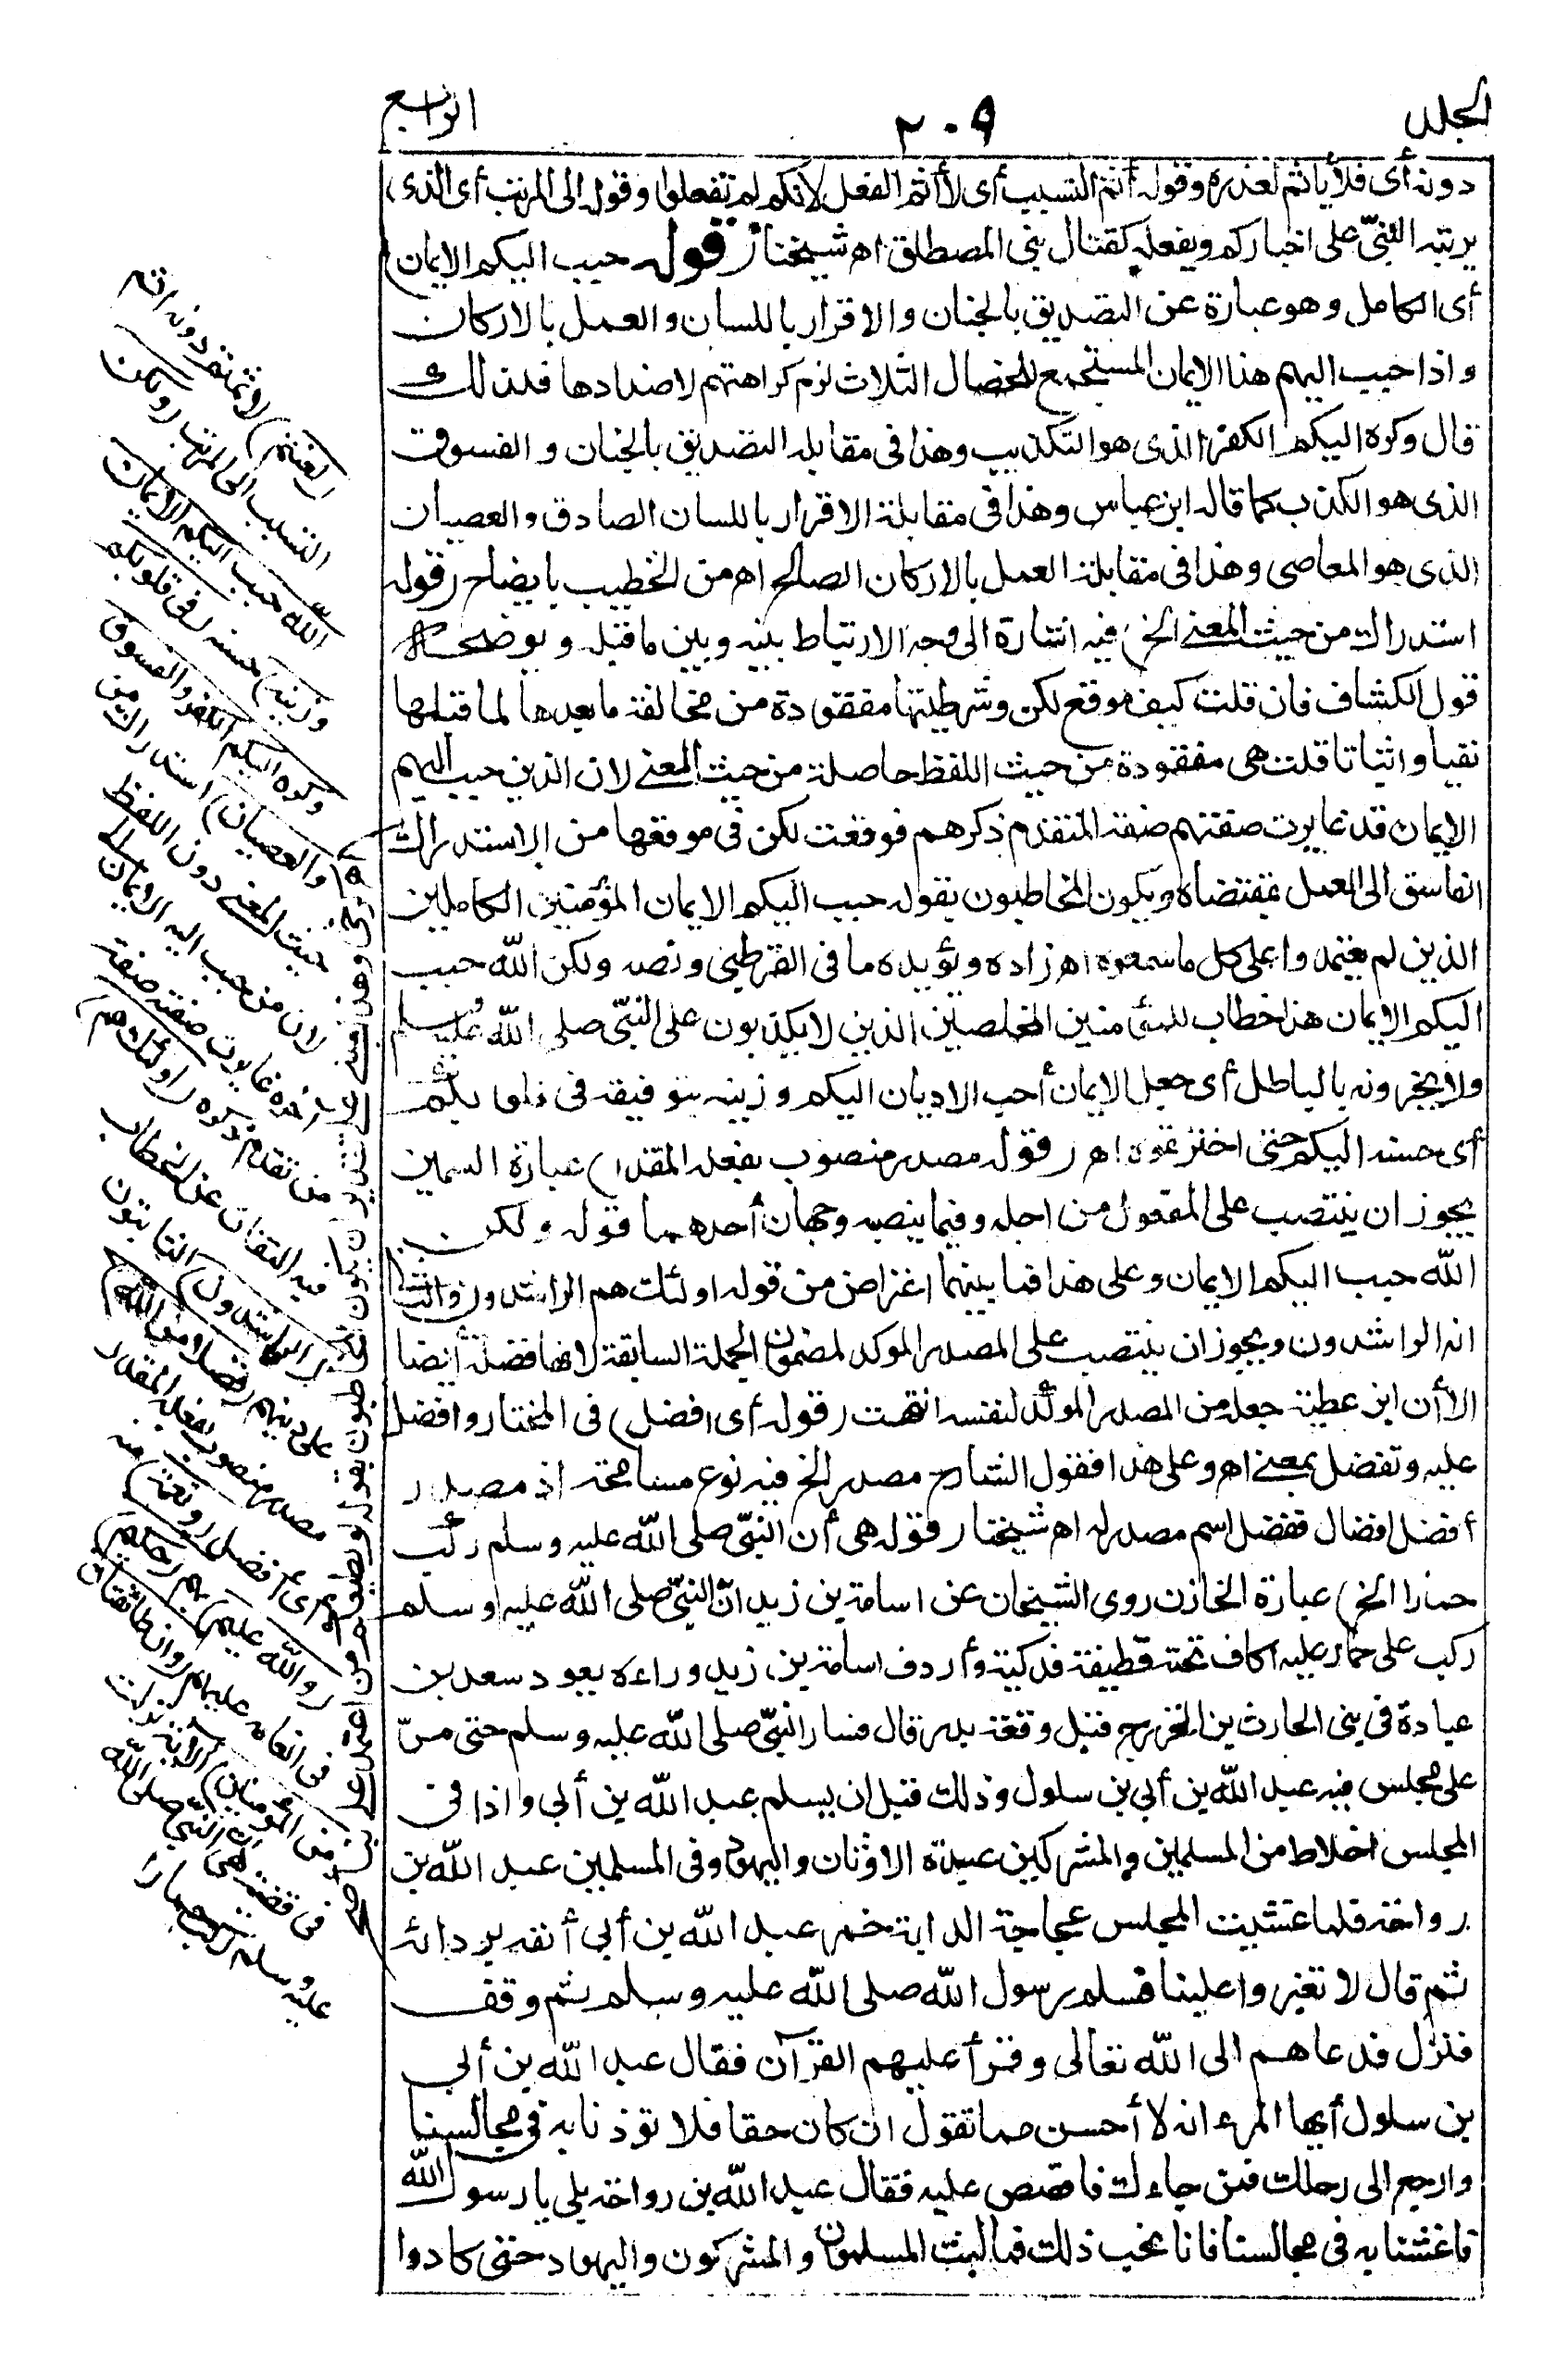 الجلد ٢٠٩ الرابع
دونه أى فلا يأثم لعذره وقوله أثم التسبب أى لا أثم الفعل لانكم لم تفعلوا وقوله الى المرتب أى الذى
يرتبه النبىّ على اخباركم ويفعله كقتال بنى المصطلق اه شيخنا (قوله حبب اليكم الايمان)
أى الكامل وهو عبارة عن التصديق بالجنان والاقرار باللسان والعمل بالاركان
واذا حبب اليهم هذا الايمان المستجمع للخصال الثلاث لزم كراهتهم لاضدادها فلذلك
قال وكره اليكم الكفر الذى هو التكذيب وهذا فى مقابلة التصديق بالجنان والفسوق
الذى هو الكذب كما قاله ابن عباس وهذا فى مقابلة الاقرار باللسان الصادق والعصيان
الذى هو المعاصى وهذا فى مقابلة العمل بالاركان الصالح اه من الخطيب بايضاح (قوله
استدراك من حيث المعنى الخ) فيه اشارة الى وجه الارتباط بينه وبين ما قبله ويوضحه
قول الكشاف فان قلت كيف موقع لكن وشرطيتها مفقودة من مخالفة ما بعدها لما قبلها
نفيا واثباتا قلت هى مفقودة من حيث اللفظ حاصلة من حيث المعنى لان الذين حبب اليهم
الايمان قد غايرت صفتهم صفة المتقدم ذكرهم فوقعت لكن فى موقعها من الاستدراك
الفاسق الى العمل بمقتضاه ويكون المخاطبون بقوله حبب اليكم الايمان المؤمنين الكاملين
الذين لم يعتمدوا على كل ما سمعوه اه زاده ويؤيده ما فى القرطبى ونصه ولكن الله حبب
اليكم الايمان هذا خطاب للمؤمنين المخلصين الذين لا يكذبون على النبىّ صلى الله عليه وسلم
ولا يخبرونه بالباطل أى جعل الايمان أحب الاديان اليكم وزينه بتوفيقه فى قلوبكم
أى حسنه اليكم حتى اخترتموه اه (قوله مصدر منصوب بفعله المقدر) عبارة السمين
يجوز ان ينتصب على المفعول من اجله وفيما ينصبه وجهان أحدهما قوله ولكن
الله حبب اليكم الايمان وعلى هذا فما بينهما اعتراض من قوله اولئك هم الراشدون والثانى
انه الراشدون ويجوز ان ينتصب على المصدر الموكد لمضمون الجملة السابقة لانها فضل أيضا
الا أن ابن عطية جعله من المصدر الموكد لنفسه انتهت (قوله أى افضل) فى المختار وافضل
عليه وتفضل بمعنى اه وعلى هذا فقول الشارح مصدر الخ فيه نوع مسامحة اذ مصدر
أفضل افضال ففضل اسم مصدر له اه شيخنا (قوله هى أن النبىّ صلى الله عليه وسلم ركب
حمارا الخ) عبارة الخازن روى الشيخان عن اسامة بن زيد انّ النبىّ صلى الله عليه وسلم
ركب على حمار عليه اكاف تحته قطيفة فدكية وأردف اسامة بن زيد وراءه يعود سعد بن
عبادة فى بنى الحارث بن الخزرج قبل وقعة بدر قال فسار النبىّ صلى الله عليه وسلم حتى مرّ
على مجلس فيه عبد الله بن أبى بن سلول وذلك قبل ان يسلم عبد الله بن أبى واذا فى
المجلس اخلاط من المسلمين والمشركين عبدة الاوثان واليهود وفى المسلمين عبد الله بن
رواحة فلما غشيت المجلس عجاجة الدابة خمر عبد الله بن أبى أنفه بردائه
ثم قال لا تغبروا علينا فسلم رسول الله صلى الله عليه وسلم ثم وقف
فنزل فدعاهم الى الله تعالى وقرأ عليهم القرآن فقال عبد الله بن أبى
بن سلول أيها المرء انه لا أحسن مما تقول ان كان حقا فلا تؤذنا به فى مجالسنا
وارجع الى رحلك فمن جاءك فاقصص عليه فقال عبد الله بن رواحة بلى يا رسول الله
فاغشنا به فى مجالسنا فانا نحب ذلك فما لبث المسلمون والمشركون واليهود حتى كادوا
(لعنتم) لاثمتم دونه اثم
التسبب الى المرتب (ولكن
الله حبب اليكم الايمان
وزينه) حسنه (فى قلوبكم
وكره اليكم الكفر والفسوق
والعصيان) استدراك من
حيث المعنى دون اللفظ
لان من حبب اليه الايمان الى
آخره غايرت صفته صفة
من تقدم ذكره (اولئك هم)
فيه التفات عن الخطاب
(الراشدون) الثابتون
على دينهم (فضلا من الله)
مصدر منصوب بفعله المقدر
أى أفضل (ونعمة) منه
(والله عليم) بهم (حكيم)
فى انعامه عليهم (وان طائفتان
من المؤمنين) الآية نزلت
فى قضية هى ان النبىّ صلى الله
عليه وسلم ركب حمارا